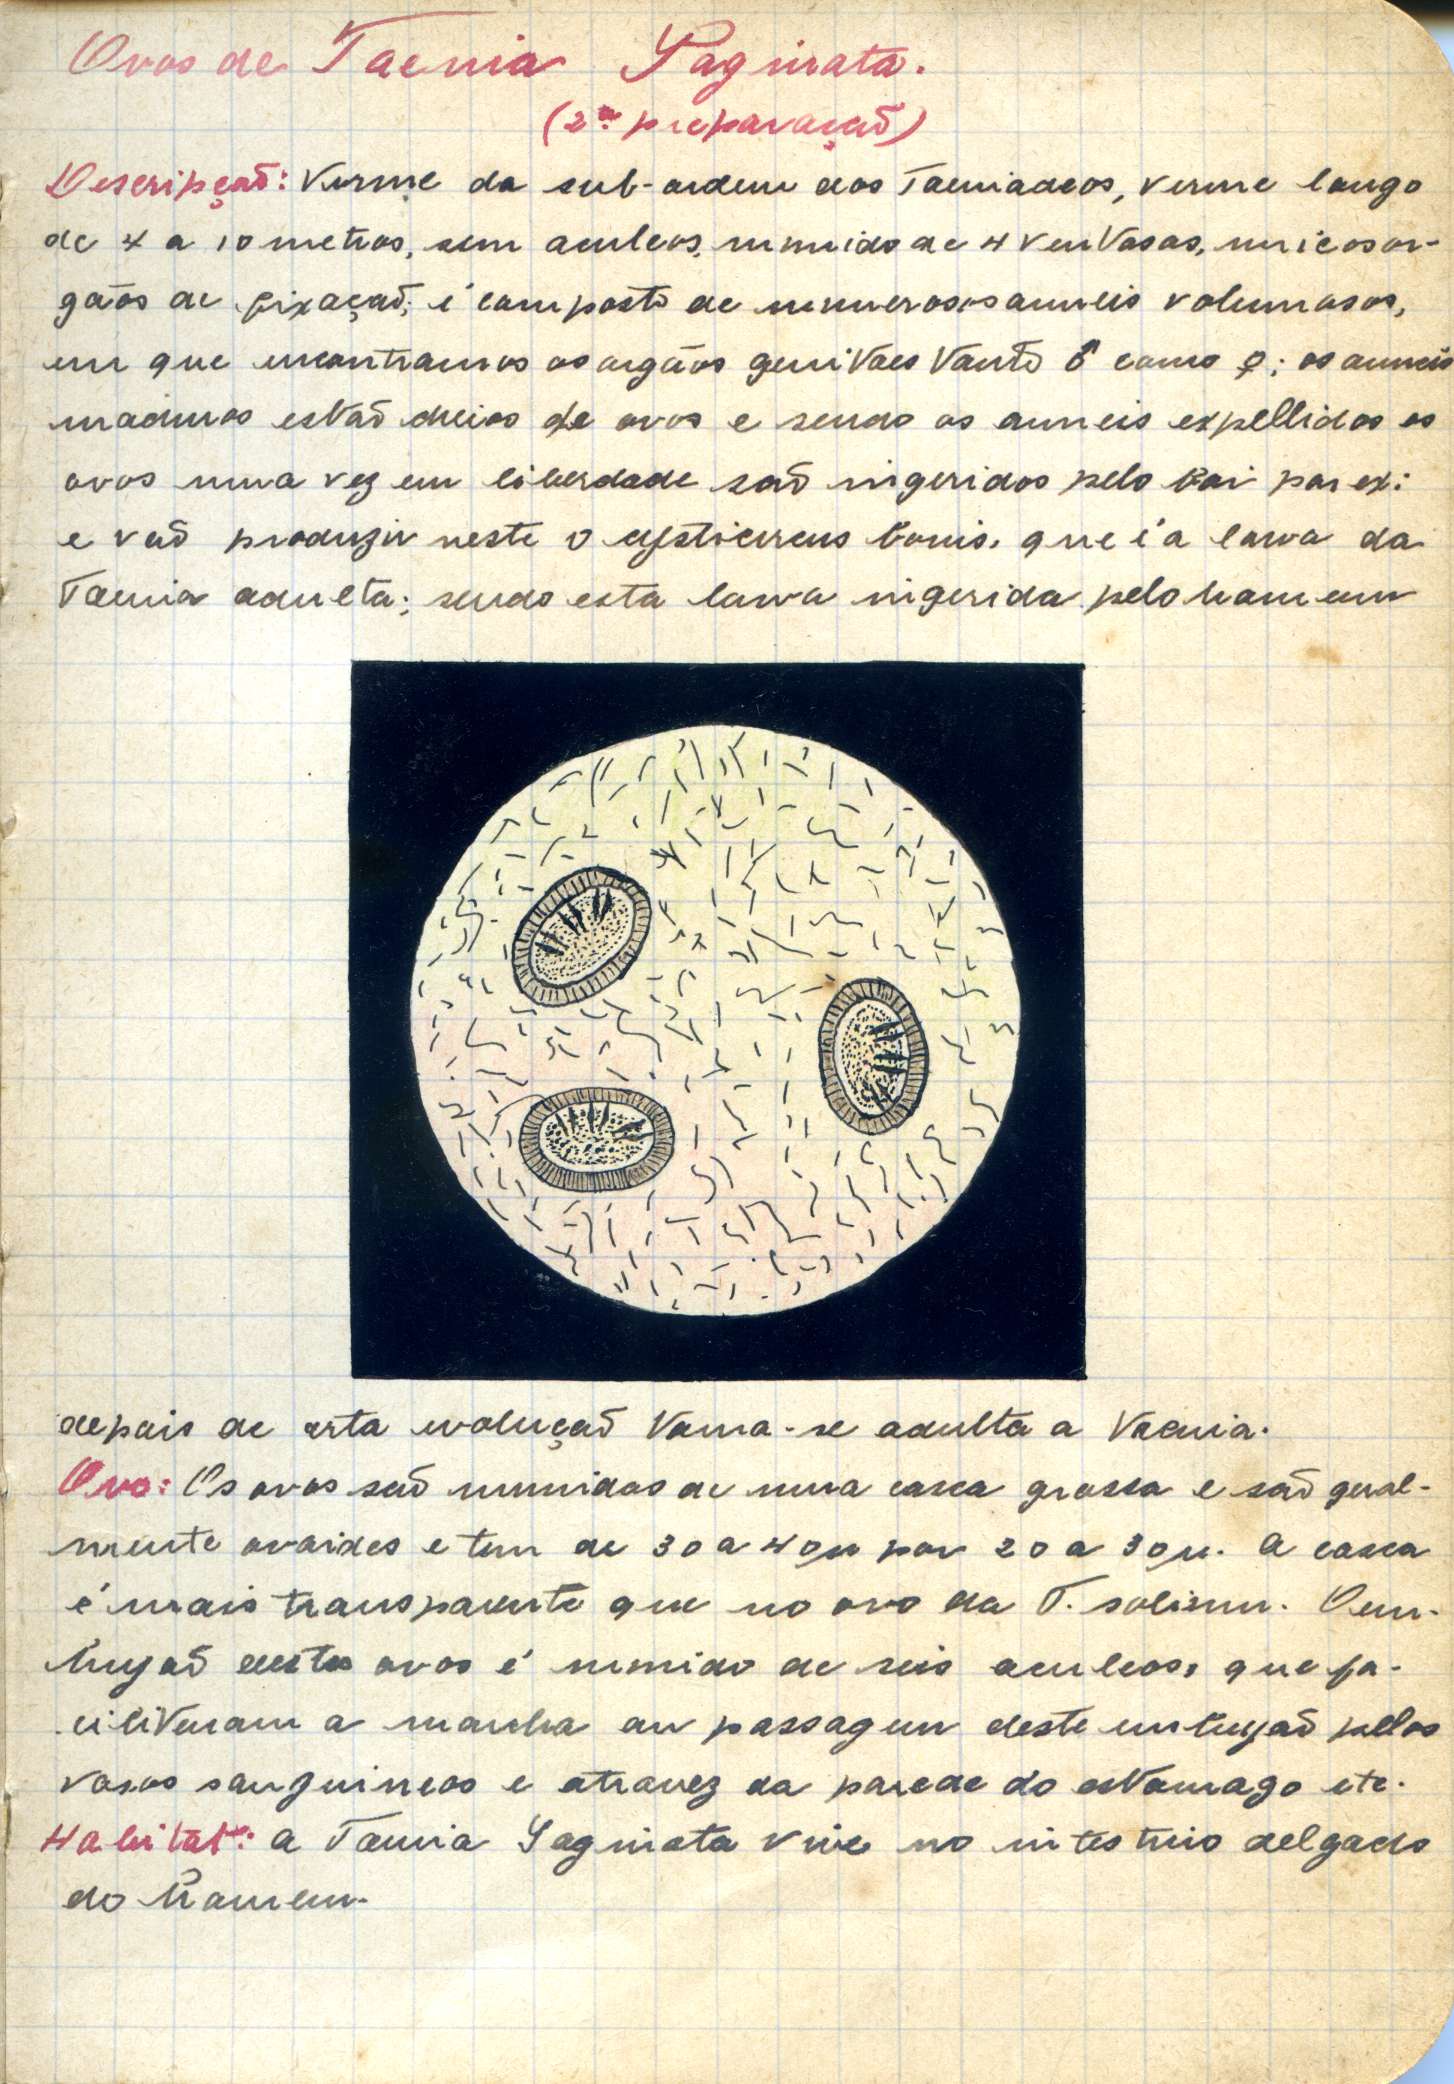 Ovos de Taenia Saginata.
(2ª preparação)
Descripção: Verme da sub-ordem dos Taeniadeos, verme longo
de 4 a 10 metros, sem aculeos, munido de 4 ventosas, unicos or-
gãos de fixação; é composto de numerosos anneis volumosos,
em que encontramos os orgãos genitaes tanto ♂ como ♀; os anneis
maduros estão cheios de ovos e sendo os anneis expellidos os
ovos uma vez em liberdade são ingeridos pelo boi por ex:
e vão produzir neste o cysticercus bovis, que é a larva da
Taenia adulta; sendo esta larva ingerida pelo homem
depois de esta evolução torna-se adulta a Taenia.
Ovo: Os ovos são munidos de uma casca grossa e são geral-
mente ovoides e tem de 30 a 40µ por 20 a 30µ. A casca
é mais transparente que no ovo da T. solium. O em-
bryão destes ovos é munido de seis aculeos, que fa-
cilitaram a marcha ou passagem deste embryão pellos
vasos sanguineos e atravez da parede do estomago etc.
Habitat: a Taenia Saginata vive no intestino delgado
do homem.